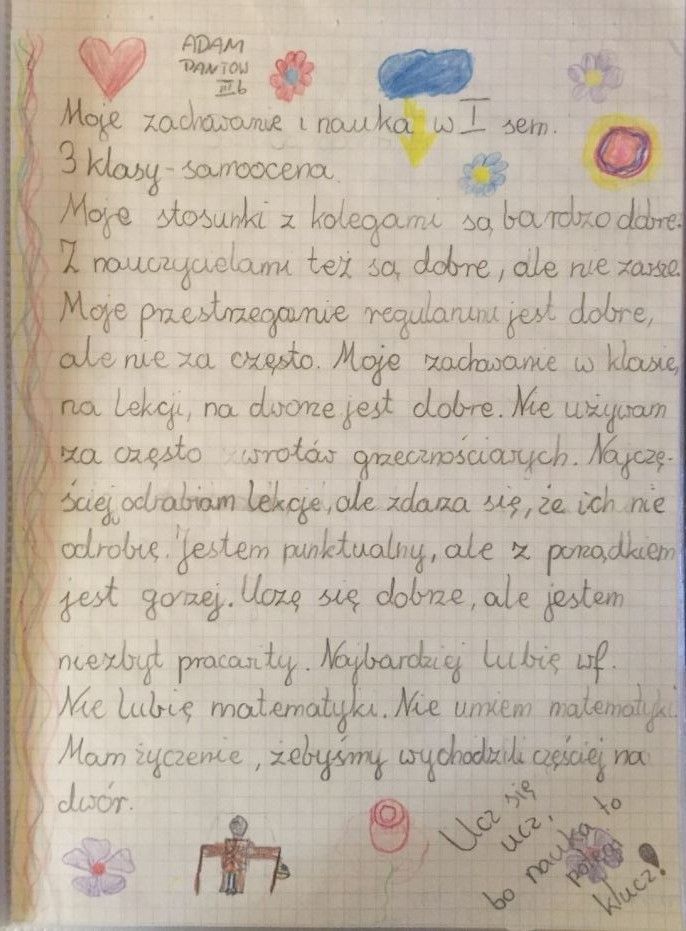 ADAM
PANTOW
III b
Moje zachowanie i nauka w I sem.
3 klasy - samoocena.
Moje stosunki z kolegami są bardzo dobre.
Z nauczycielami też są dobre, ale nie zawsze.
Moje przestrzeganie regulaminu jest dobre,
ale nie za często. Moje zachowanie w klasie,
na lekcji, na dworze jest dobre. Nie używam
za często zwrotów grzecznościowych. Najczę-
ściej odrabiam lekcje, ale zdaża się, że ich nie
odrobię. Jestem punktualny, ale z porządkiem
jest gorzej. Uczę się dobrze, ale jestem
niezbyt pracowity. Najbardziej lubię wf.
Nie lubię matematyki. Nie umiem matematyki.
Mam życzenie, żebyśmy wychodzili częściej na
dwór.
Ucz się
ucz,
bo nauka to
potęgi
klucz!